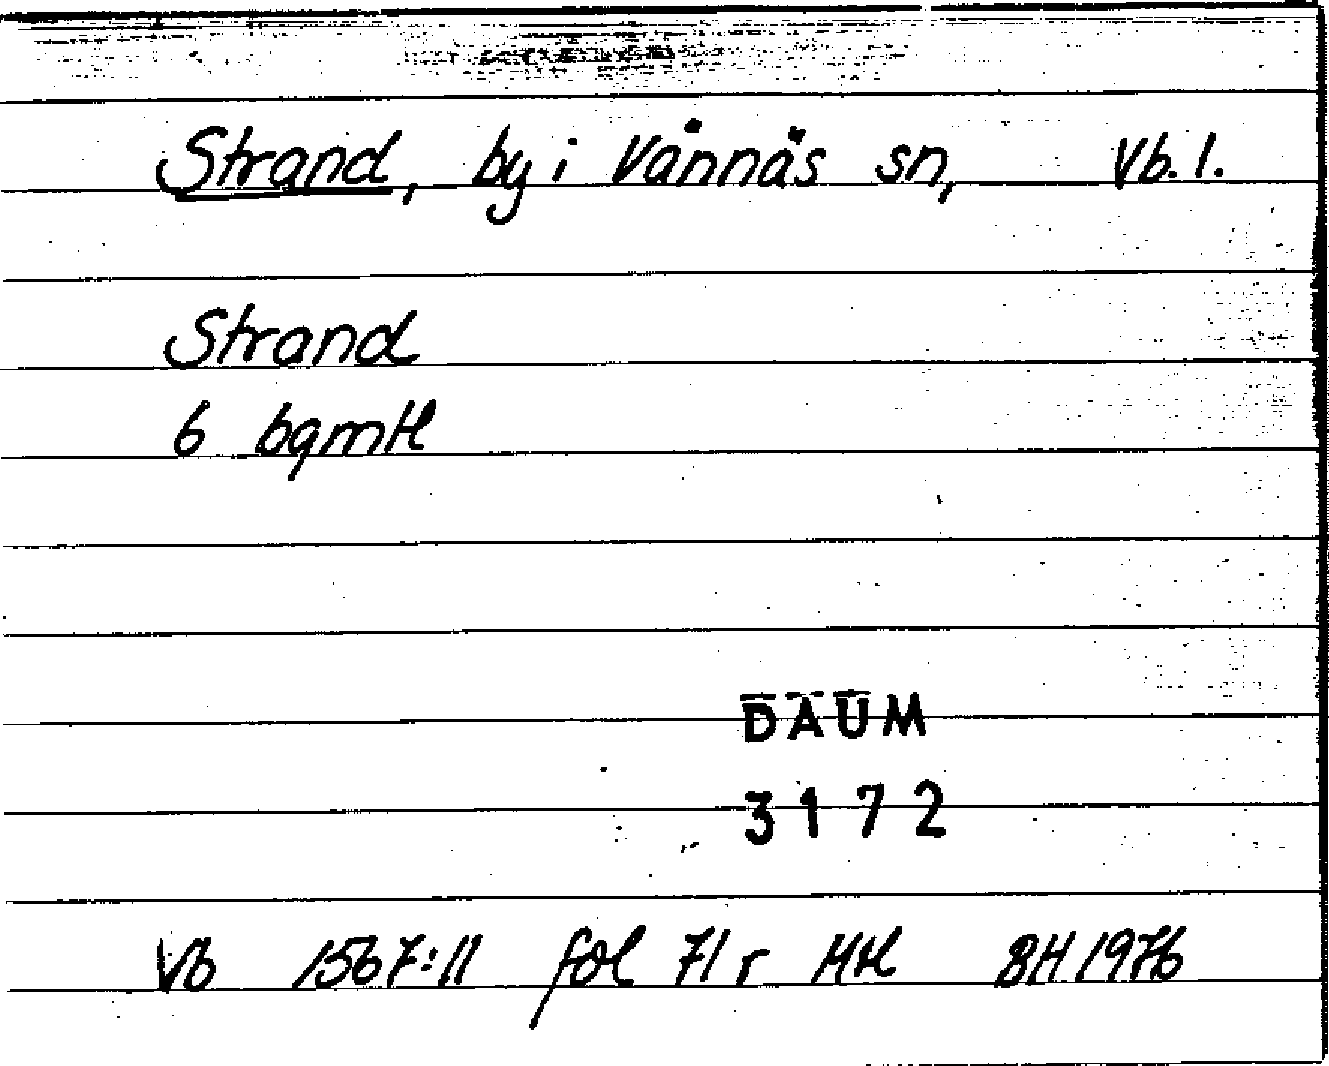 Strand, by i Vännäs sn, Vb. l.
Strand
6 bgmtl
DAUM
3172
Vb 1567:11 fol 71 r MH BH 1976